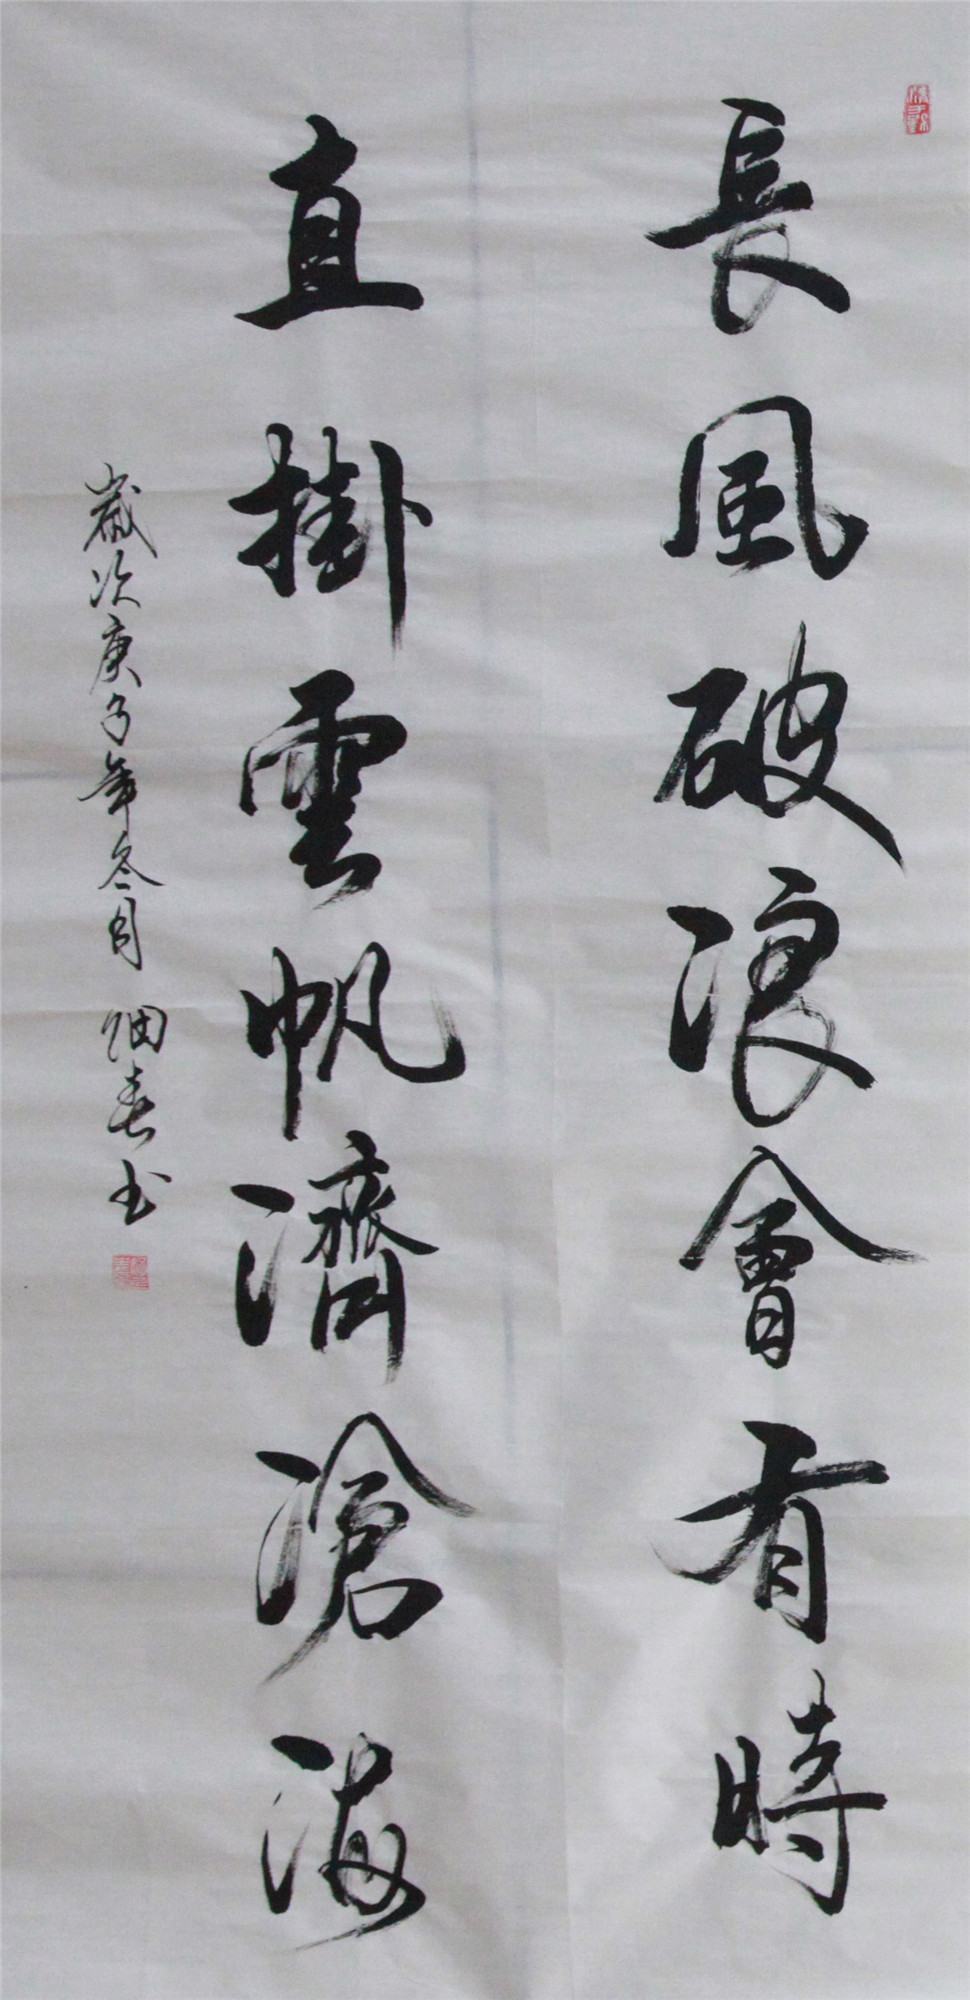 長風破浪會有時
直掛雲帆濟滄海
歲次庚子年冬月 細春书